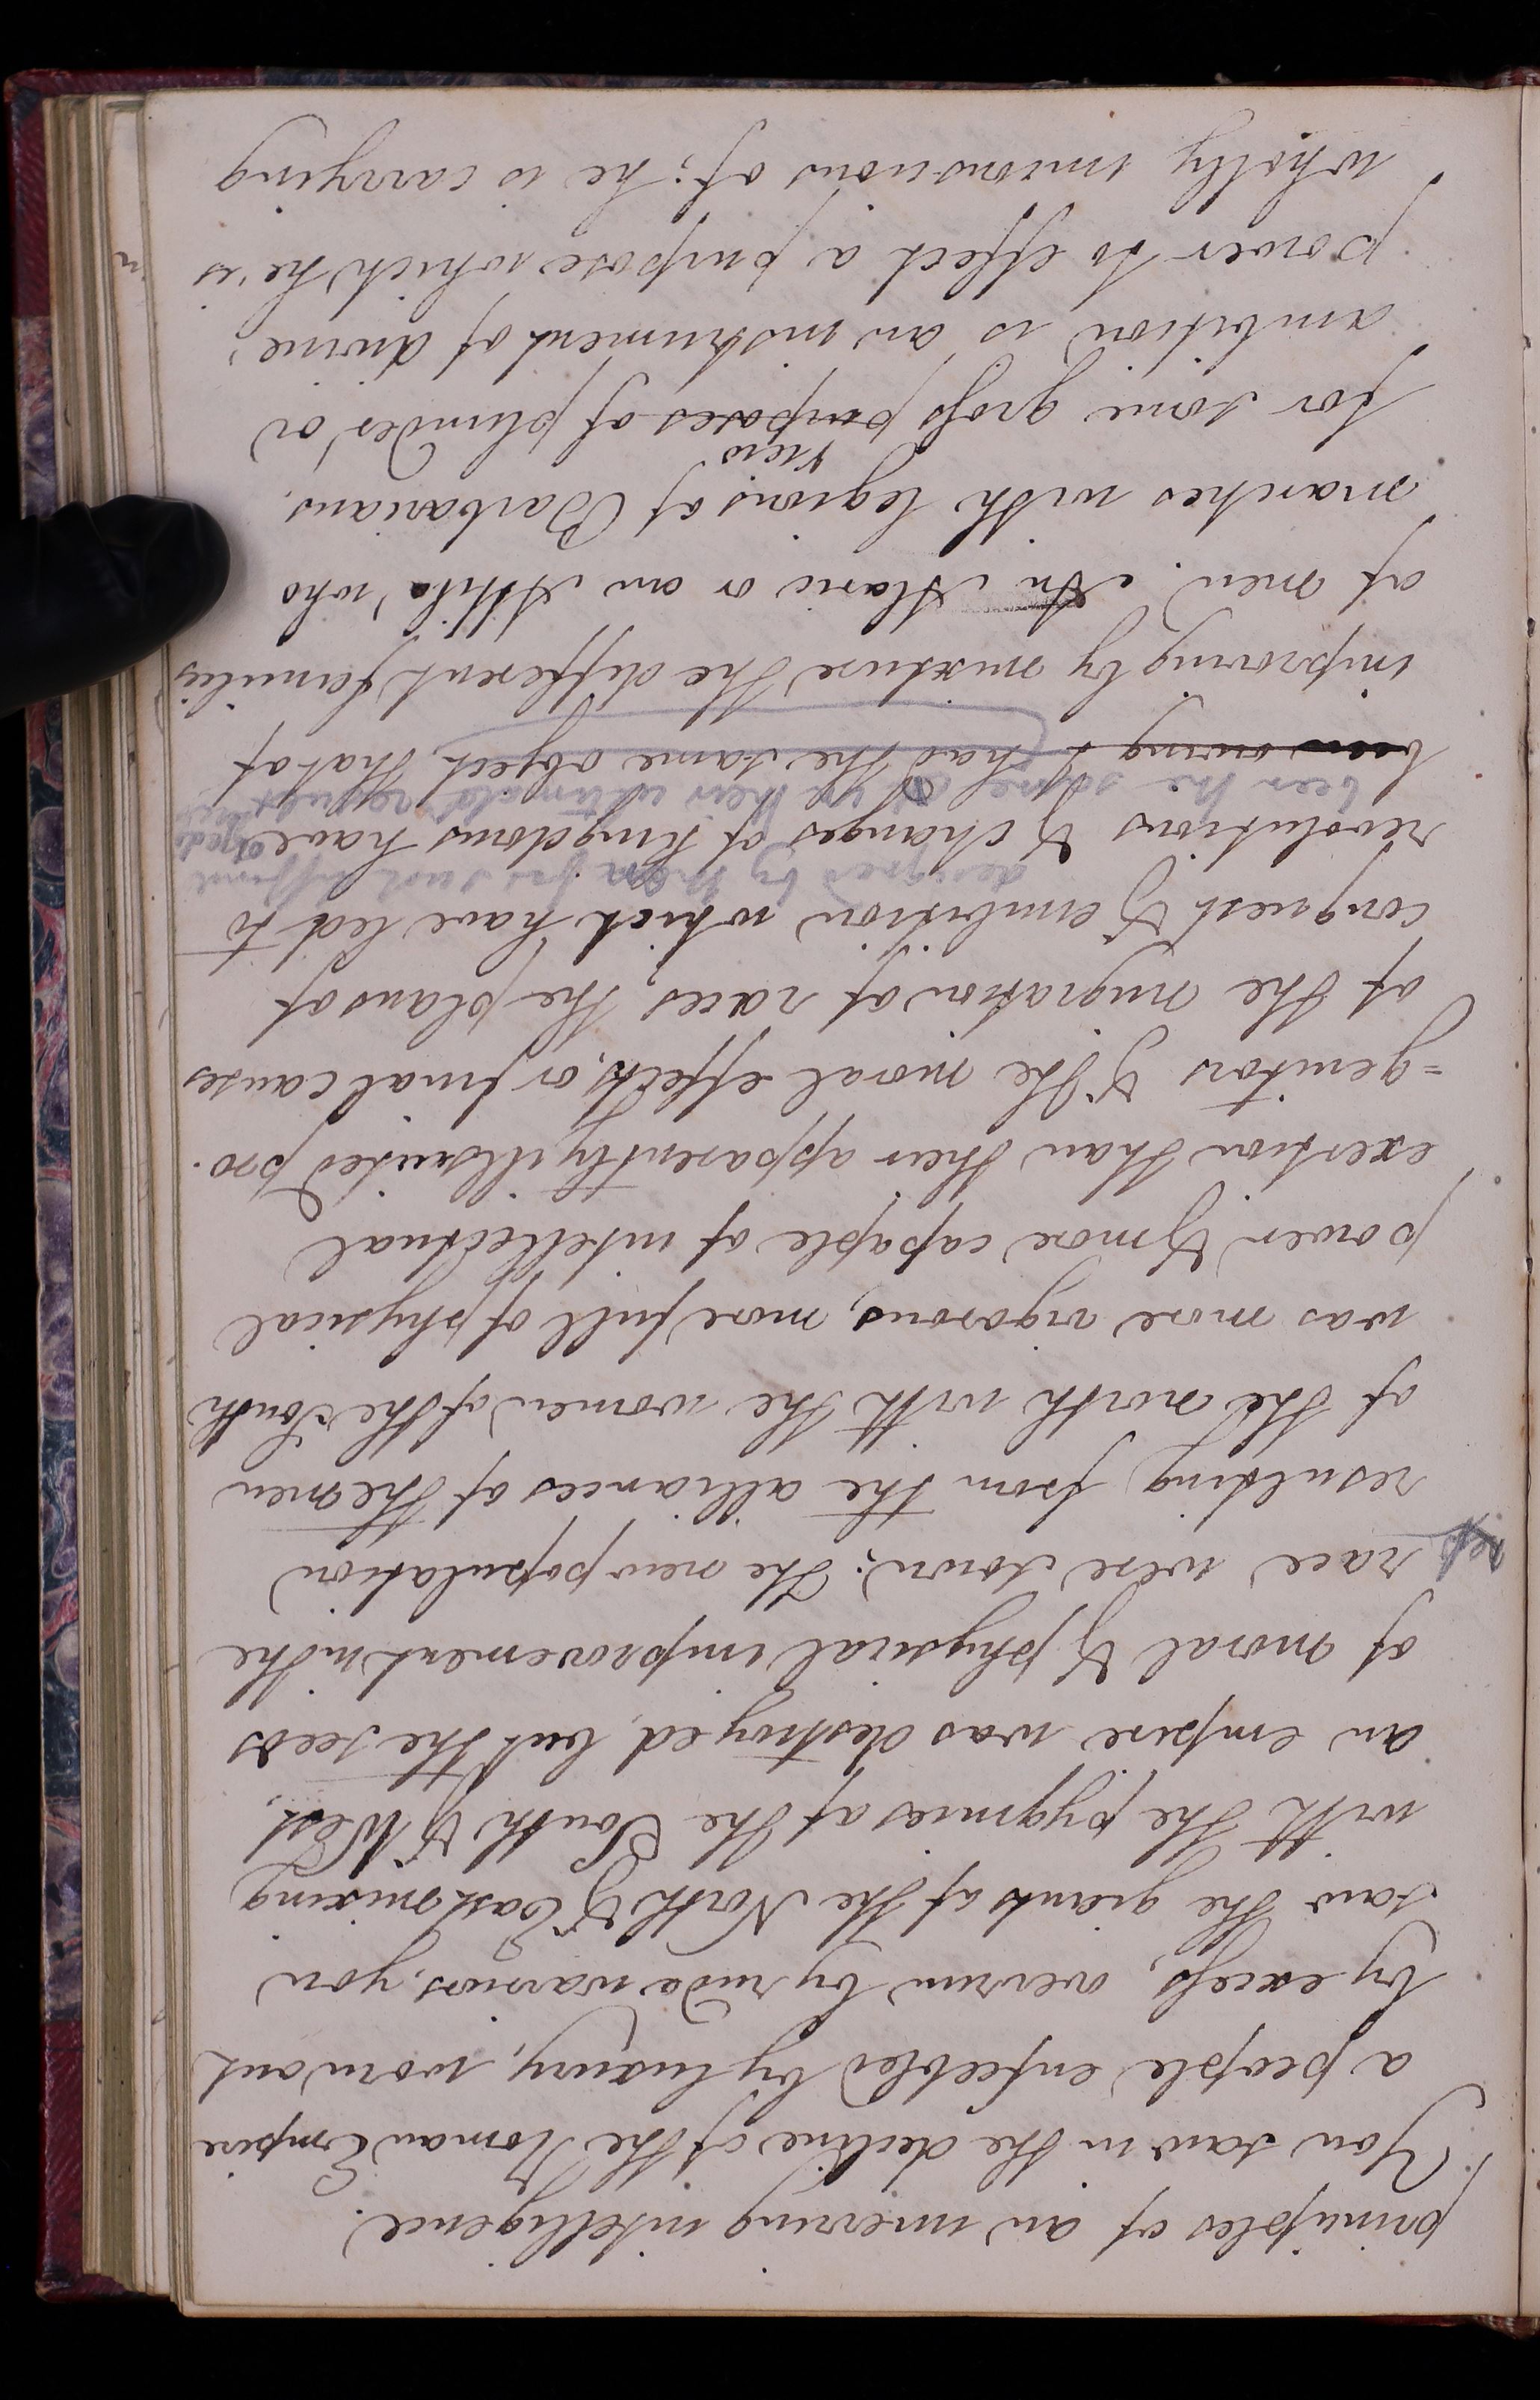 principles of an unerring intelligence.
You saw in the decline of the Roman Empire
a people enfeebled by luxury, worn out
by excess, overrun by rude warriors, you
saw the giants of the North & East mixing
with the pygmies of the South & West,
an empire was destroyed, but the seeds
of moral & physical improvement in the
race were sown; the new population
resulting from the alliances of the men
of the north with the women of the South
was more vigorous, more full of physical
power & more capable of intellectual
exertion than their apparently illsuited pro-
=genitors & the moral effects, or final causes
of the migration of races, the plans of
conquest & ambition which have led to
designed by men for such different
revolutions & changes of kingdoms have
been the same in their ultimate
been owing to had the same object, that of
improving by mixture the different families
of men. An Alaric or an Attila, who
marches with legions of Barbarians,
view
for some gross purposes of plunder or
ambition is an instrument of divine,
power to effect a purpose which he is
wholly unconscious of; he is carrying